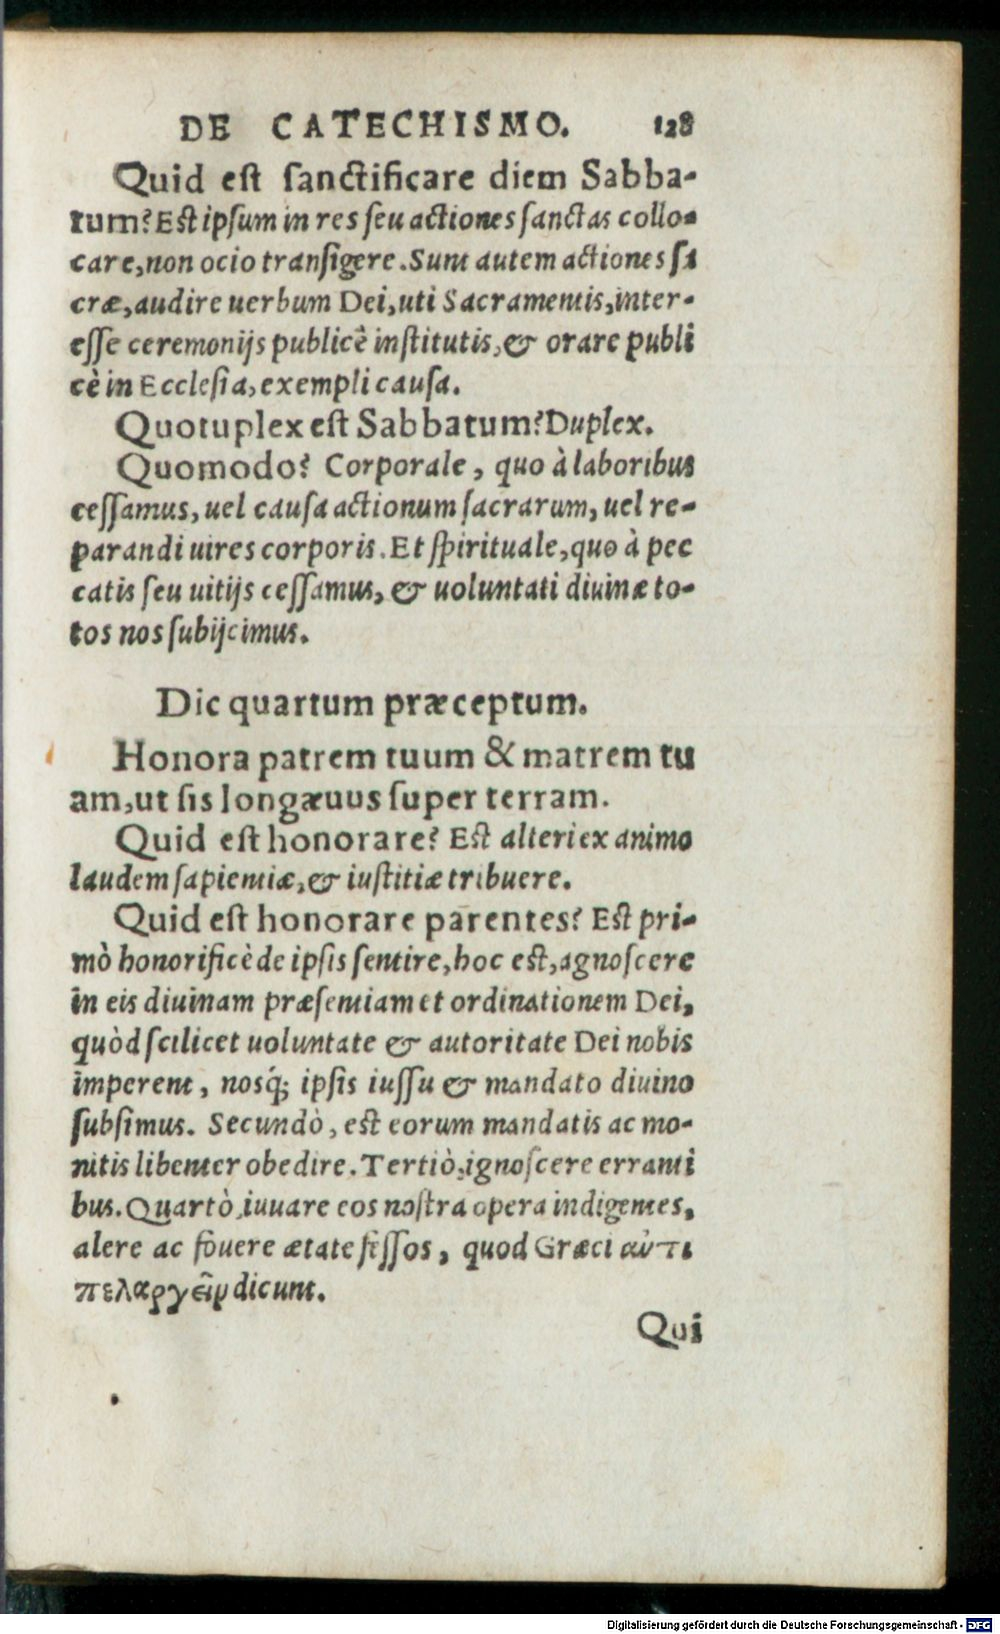 DE CATECHISMO. 128
Quid est sanctificare diem Sabba-
tum? Est ipsum in res seu actiones sanctas collo-
care, non ocio transigere. Sunt autem actiones sa
cræ, audire uerbum Dei, uti Sacramentis, inter-
esse ceremonijs publicè institutis, & orare publi
cè in Ecclesia, exempli causa.
Quotuplex est Sabbatum? Duplex.
Quomodo? Corporale, quo à laboribus
cessamus, uel causa actionum sacrarum, uel re-
parandi uires corporis. Et spirituale, quo à pec
catis seu uitijs cessamus, & uoluntati diuinæ to-
tos nos subijcimus.
Dic quartum præceptum.
Honora patrem tuum & matrem tu
am, ut sis longæuus super terram.
Quid est honorare? Est alteri ex animo
laudem sapientiæ, & iustitiæ tribuere.
Quid est honorare parentes? Est pri-
mò honorificè de ipsis sentire, hoc est, agnoscere
in eis diuinam præsentiam et ordinationem Dei,
quòd scilicet uoluntate & autoritate Dei nobis
imperent, nosq́; ipsis iussu & mandato diuino
subsimus. Secundò, est eorum mandatis ac mo-
nitis libenter obedire. Tertiò, ignoscere erranti
bus. Quartò, iuuare eos nostra opera indigentes,
alere ac fouere ætate fessos, quod Græci ἀντι
πελαργεῖν dicunt.
Qui
Digitalisierung gefördert durch die Deutsche Forschungsgemeinschaft - DFG